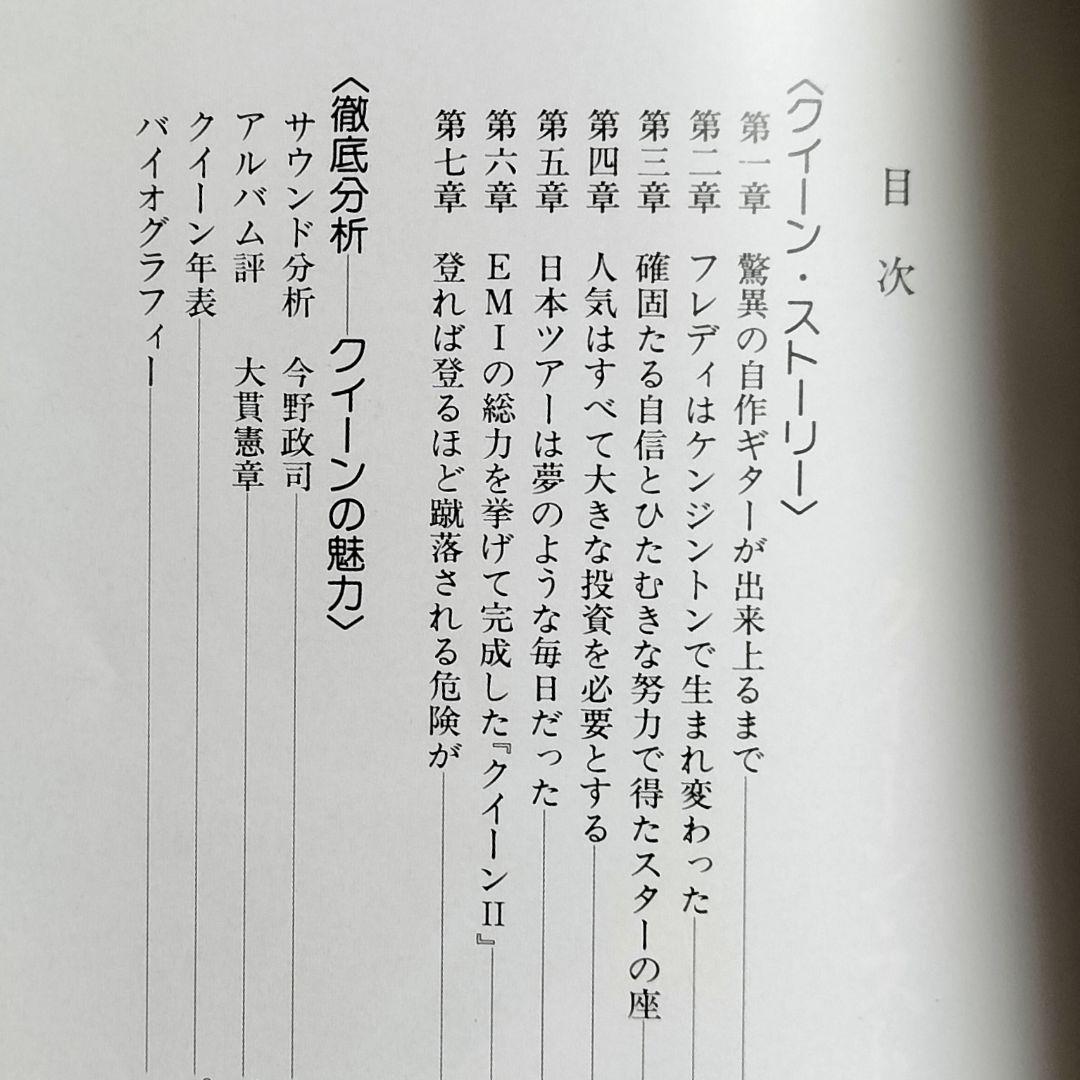 目次
〈クイーン・ストーリー〉
第一章 驚異の自作ギターが出来上るまで
第二章 フレディはケンジントンで生まれ変わった
第三章 確固たる自信とひたむきな努力で得たスターの座
第四章 人気はすべて大きな投資を必要とする
第五章 日本ツアーは夢のような毎日だった
第六章 EMIの総力を挙げて完成した『クイーンII』
第七章 登れば登るほど蹴落される危険が
〈徹底分析――クイーンの魅力〉
サウンド分析 今野政司
アルバム評 大貫憲章
クイーン年表
バイオグラフィー